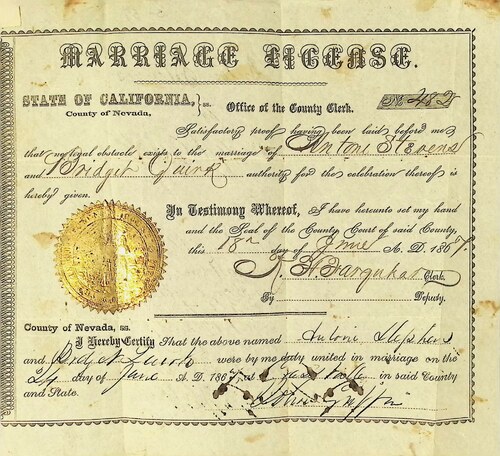 MARRIAGE LICENSE.
STATE OF CALIFORNIA, } ss. Office of the County Clerk. No. 482
County of Nevada,
Satisfactory proof having been laid before me
that no legal obstacle exists to the marriage of Antoni Stevens
and Bridget Quirk authority for the celebration thereof is
hereby given.
In Testimony Whereof, I have hereunto set my hand
and the Seal of the County Court of said County,
this day of June A. D. 1867.
Farquhar Clerk.
By Deputy.
County of Nevada, ss.
I Hereby Certify That the above named Antoni Stephens
and Bridget were by me duly united in marriage on the
24 day of June A. D. 1867, at Grass Valley in said County
and State.
Griffin